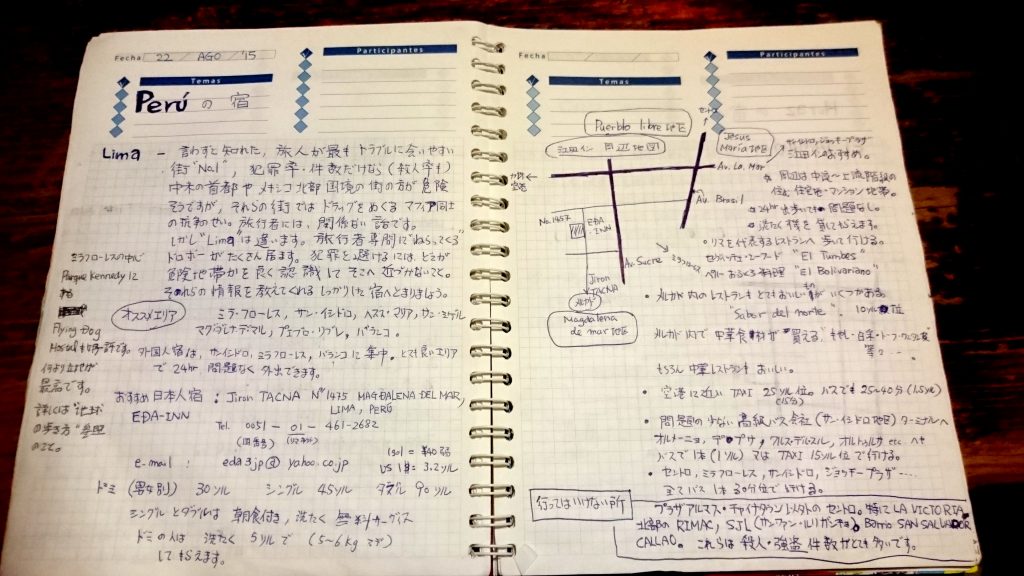 Fecha 22 / AGO / '15
Participantes
Temas
Perú の 宿
Lima - 言わずと知れた、旅人が最もトラブルに会いやすい
街"No1", 犯罪率・件数だけなら(殺人率も)
中米の首都や メキシコ北部 国境の街の方が危険
そうですが、それらの街ではドラッグをめぐる マフィア同士
の抗争せい。旅行者には、関係ない話です。
しかし"Lima"は違います。旅行者専門に"ねらってくる
ドロボーがたくさん居ます。犯罪を避けるには、どこが
危険地帯かを良く認識して そこへ近づかないこと。
それらの情報を教えてくれる しっかりした宿へとまりましょう。
ミラフローレスの中心
Parque Kennedy に
ある
Flying Dog
Hostal も
何より立地が
最高です。
詳しくは"地球
の歩き方"参照
のこと。
オススメエリア
ミラ・フローレス, サン・イシドロ, ヘスス・マリア, サン・ミゲル
マグダレナ・デ・マル, プエブロ・リブレ, バランコ.
外国人宿は、サンイシドロ, ミラフローレス, バランコに集中。とても良いエリア
で 24hr 問題なく外出できます。
おすすめ日本人宿 : Jiron TACNA Nº1475 MAGDALENA DEL MAR,
LIMA, PERÚ
EDA-INN
Tel. 0051 - 01 - 461-2682
(国番号)
1sol = ¥40弱
US 1$ = 3.2ソル
e-mail : eda3jp@yahoo.co.jp
ドミ (男女別) 30ソル シングル 45ソル ダブル 90ソル
シングルとダブルは 朝食付き, 洗たく 無料サービス
ドミの人は 洗たく 5ソルで (5~6kgまで)
してもらえます。
Fecha
Participantes
Temas
Pueblo libre 地区
江田イン 周辺地図
セントロ
Jesus
Maria地区
Av. La Mar
Av. Brasil
No.1457
EDA
-INN
Av. Sucre
ミラフローレス
Jiron
TACNA
メルカド
Magdalena
de mar 地区
江田インおすすめ。
周辺は中流~上流階級の
住む住宅地・マンション地帯。
24hr 出歩いても 問題なし。
洗たく物を
リマを代表するレストランへ 歩いて行ける。
"El Tumbes"
"El Bolivariano"
メルカド内のレストランもとてもおいしい事がいくつかある。
"Sabor del norte". 10ソル位
メルカド内で 中華食材が 買える。
等々….
もちろん中華レストランもおいしい。
空港に近い TAXI 25ソル位。バスでも25~40分(1.5ソル)
(15分)
問題の少ない高級バス会社 (サン・イシドロ地区) ターミナルへ
オルメーニョ, クルス・デル・スル, オルトゥルサ etc へも
バスで1本(1ソル) 又は TAXI 15ソル位で行ける。
セントロ, ミラフローレス, サンイシドロ, ジョッキープラザ….
全てバス1本 30分位で行ける。
行ってはいけない所
プラザアルマス・チャイナタウン以外のセントロ。特に LA VICTORIA
北部の RIMAC, SJL (サンファン・ルリガンチョ), Barrio SAN SALVADOR
CALLAO. これらは 殺人・強盗 件数がとても多いです。